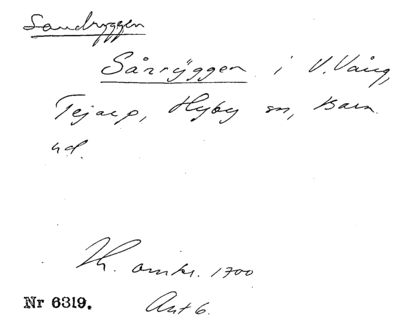 Sandryggen
Sånrÿggen i V. Vång,
Tejarp, Hyby sn, Bara
hd.
Th. omkr. 1700
Nr 6319. Avt 6.